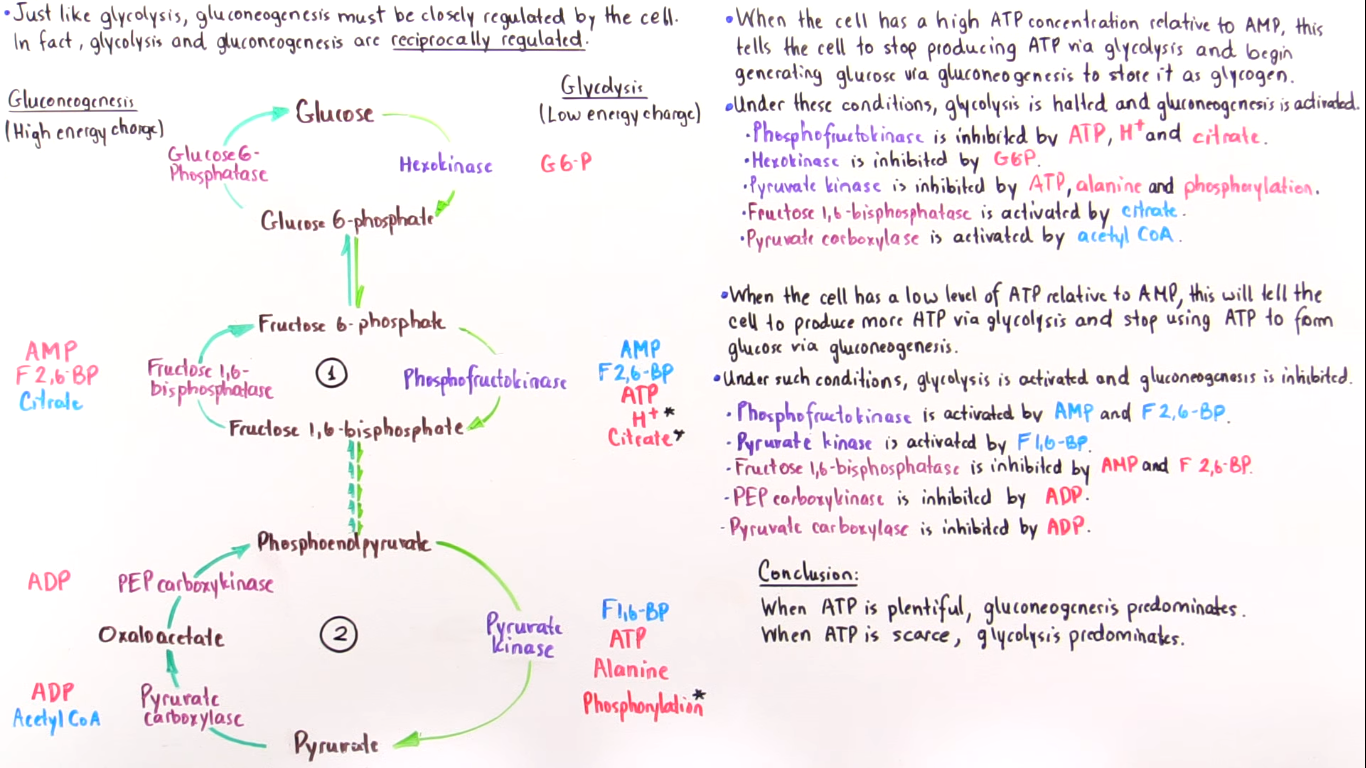 • Just like glycolysis, gluconeogenesis must be closely regulated by the cell.
In fact, glycolysis and gluconeogenesis are reciprocally regulated.
Gluconeogenesis
(High energy charge)
Glycolysis
(Low energy charge)
Glucose
Glucose 6-
Phosphatase
Hexokinase
G6-P
Glucose 6-phosphate
Fructose 6-phosphate
AMP
F2,6-BP
Citrate
Fructose 1,6-
bisphosphatase
1
Phosphofructokinase
AMP
F2,6-BP
ATP
H+*
Citrate*
Fructose 1,6-bisphosphate
Phosphoenolpyruvate
ADP
PEP carboxykinase
Oxaloacetate
2
Pyruvate
kinase
F1,6-BP
ATP
Alanine
Phosphorylation*
ADP
Acetyl CoA
Pyruvate
carboxylase
Pyruvate
• When the cell has a high ATP concentration relative to AMP, this
tells the cell to stop producing ATP via glycolysis and begin
generating glucose via gluconeogenesis to store it as glycogen.
• Under these conditions, glycolysis is halted and gluconeogenesis is activated.
• Phosphofructokinase is inhibited by ATP, H+ and citrate.
• Hexokinase is inhibited by G6P.
• Pyruvate kinase is inhibited by ATP, alanine and phosphorylation.
• Fructose 1,6-bisphosphatase is activated by citrate.
• Pyruvate carboxylase is activated by acetyl CoA.
• When the cell has a low level of ATP relative to AMP, this will tell the
cell to produce more ATP via glycolysis and stop using ATP to form
glucose via gluconeogenesis.
• Under such conditions, glycolysis is activated and gluconeogenesis is inhibited.
• Phosphofructokinase is activated by AMP and F2,6-BP.
• Pyruvate kinase is activated by F1,6-BP.
- Fructose 1,6-bisphosphatase is inhibited by AMP and F 2,6-BP.
- PEP carboxykinase is inhibited by ADP.
- Pyruvate carboxylase is inhibited by ADP.
Conclusion:
When ATP is plentiful, gluconeogenesis predominates.
When ATP is scarce, glycolysis predominates.